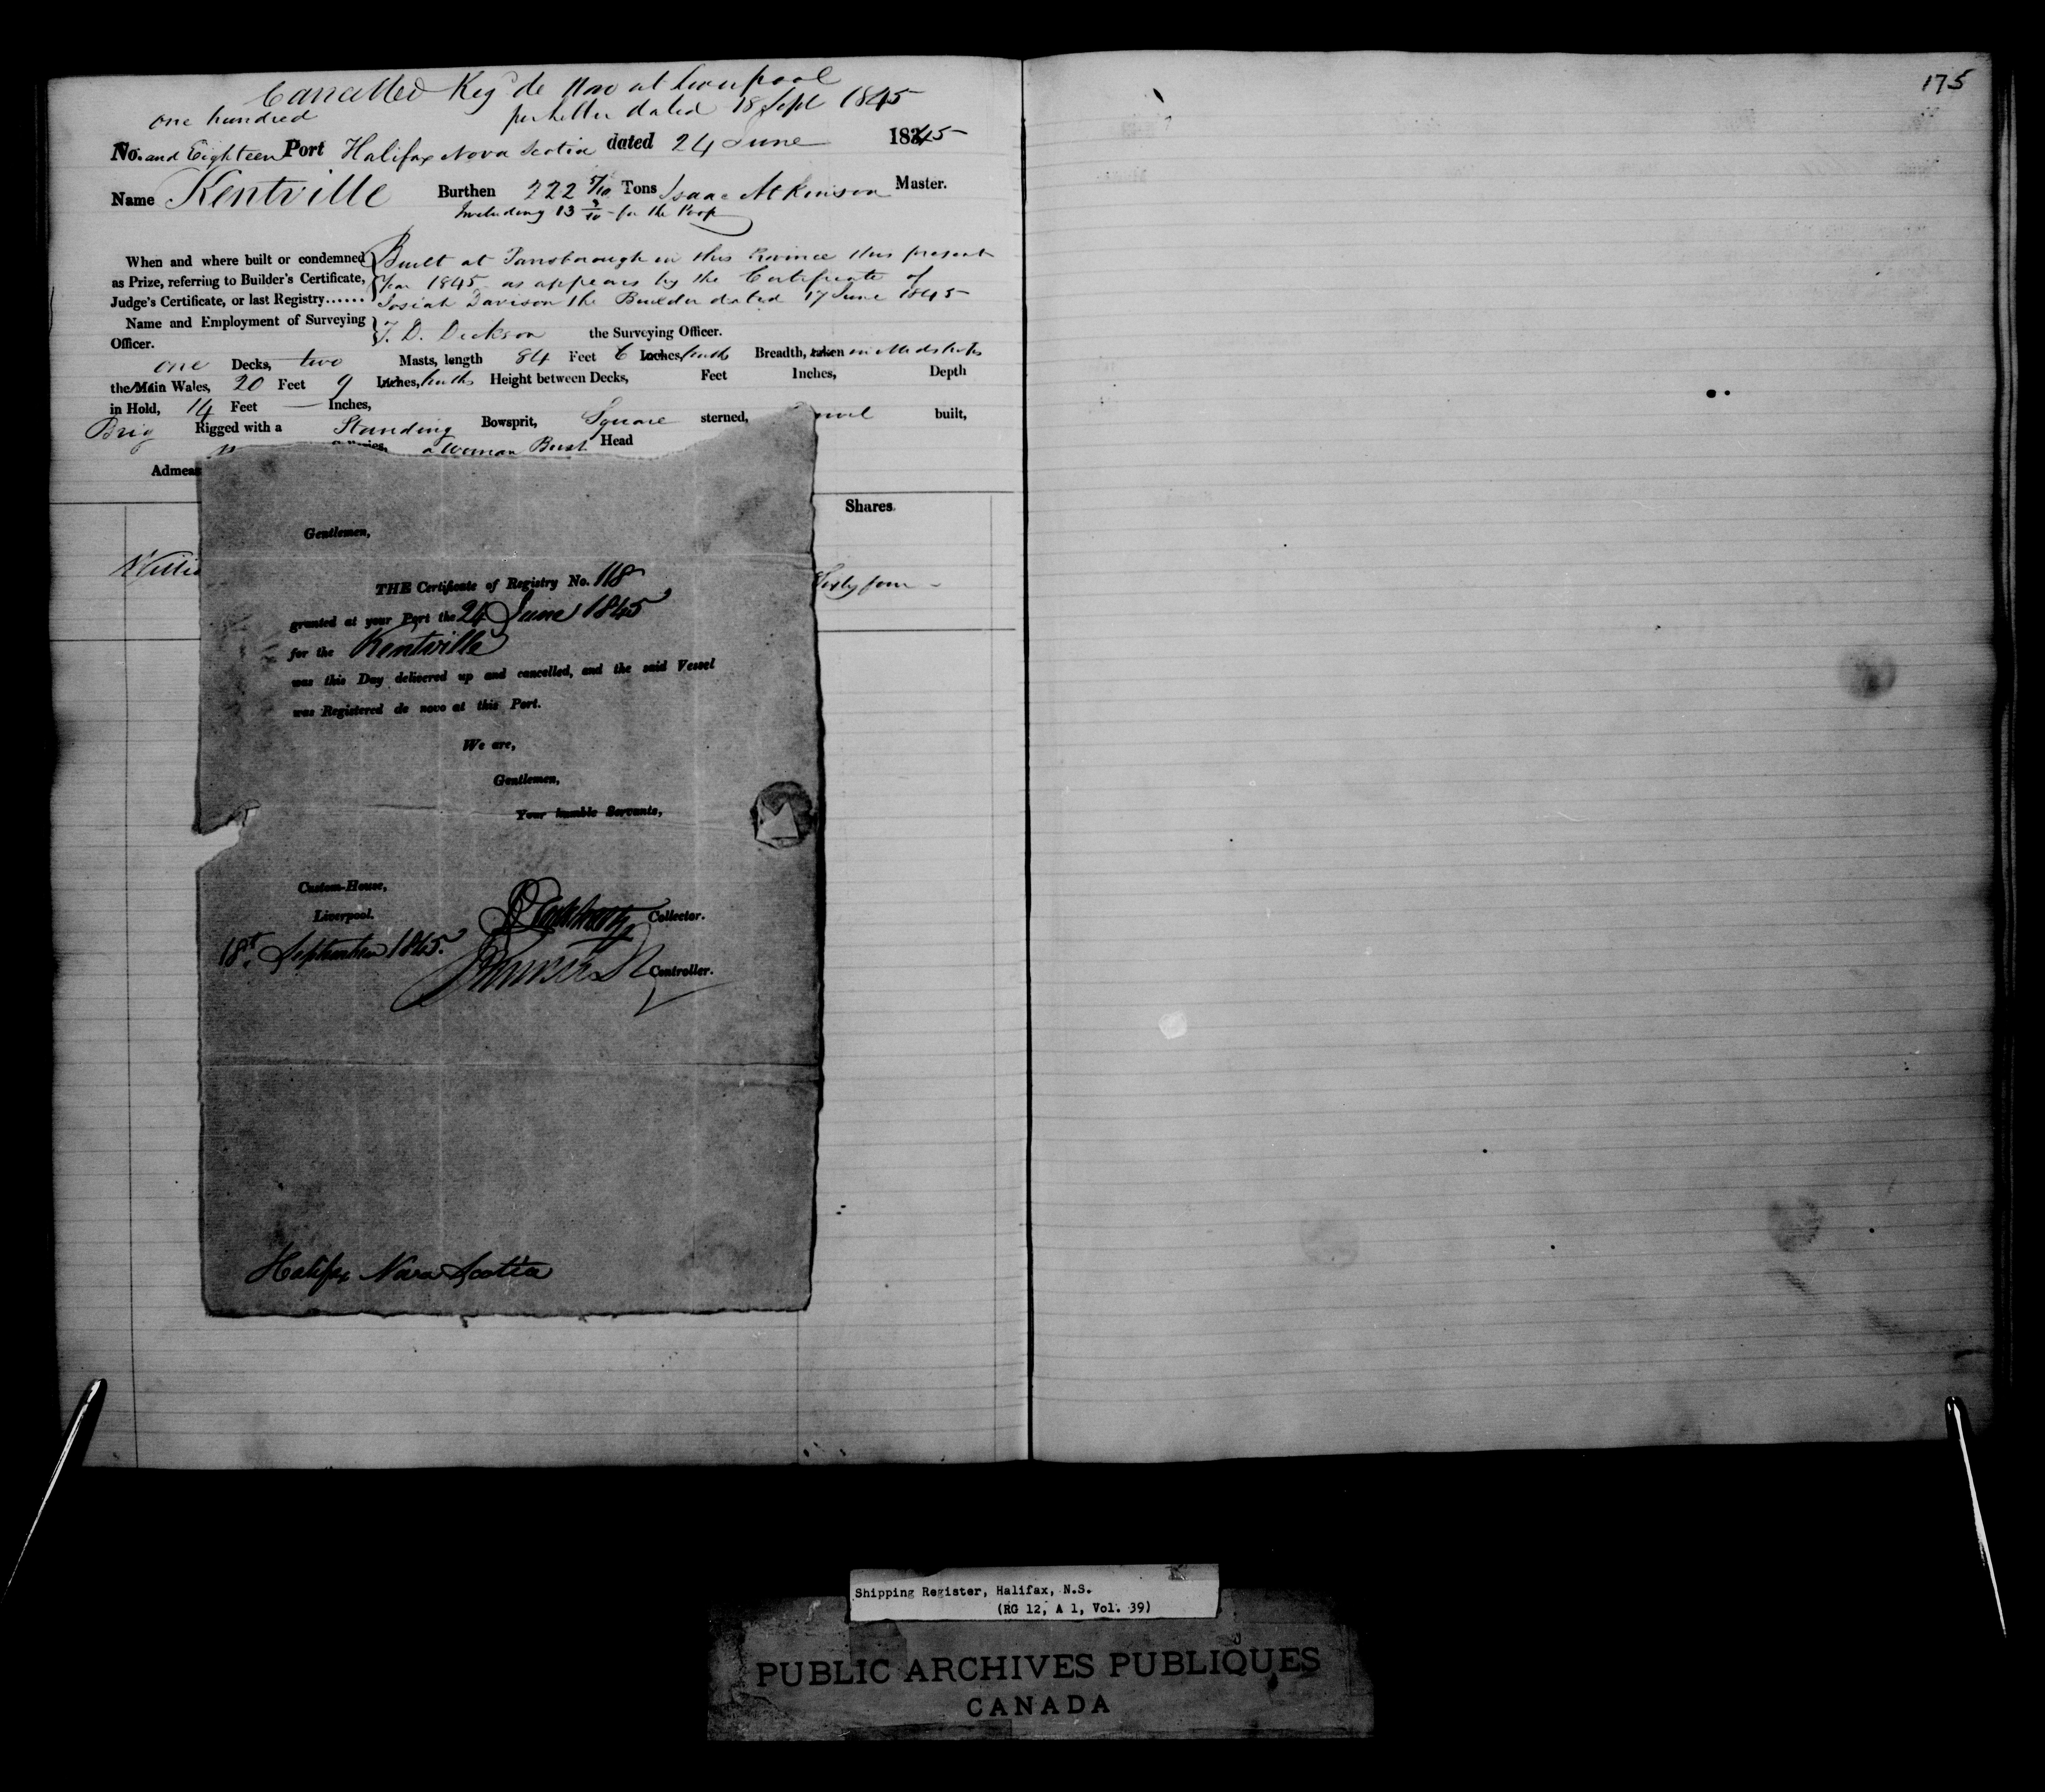 Cancelled Reg de Novo at Liverpool
per Letter dated 18 Sept 1845
one hundred
No. and Eighteen Port Halifax Nova Scotia dated 24 June 1845
Name Kentville Burthen 222 5/10 Tons Isaac Atkinson Master.
Including 13 3/10 for the Poop
When and where built or condemned
as Prize, referring to Builder's Certificate,
Judge's Certificate, or last Registry......
Built at Parrsborough in this Province this present
Year 1845 as appears by the Certificate of
Josiah Davison the Builder dated 17 June 1845
Name and Employment of Surveying
Officer.
T. D. Dickson the Surveying Officer.
one Decks, two Masts, length 84 Feet 6 Inches, tenths Breadth, taken in Midships
the Main Wales, 20 Feet 9 Inches, tenths Height between Decks, Feet Inches, Depth
in Hold, 14 Feet — Inches,
Brig Rigged with a Standing Bowsprit, Square sterned, built,
a Woman Bust Head
Admeas
Shares.
Willia
Sixty four
Gentlemen,
THE Certificate of Registry No. 118
granted at your Port the 24 June 1845
for the Kentville
was this Day delivered up and cancelled, and the said Vessel
was Registered de novo at this Port.
We are,
Gentlemen,
Your humble Servants,
Custom-House,
Liverpool.
Collector.
18th September 1845.
Controller.
Halifax Nova Scotia
175
Shipping Register, Halifax, N.S.
(RG 12, A 1, Vol. 39)
PUBLIC ARCHIVES PUBLIQUES
CANADA